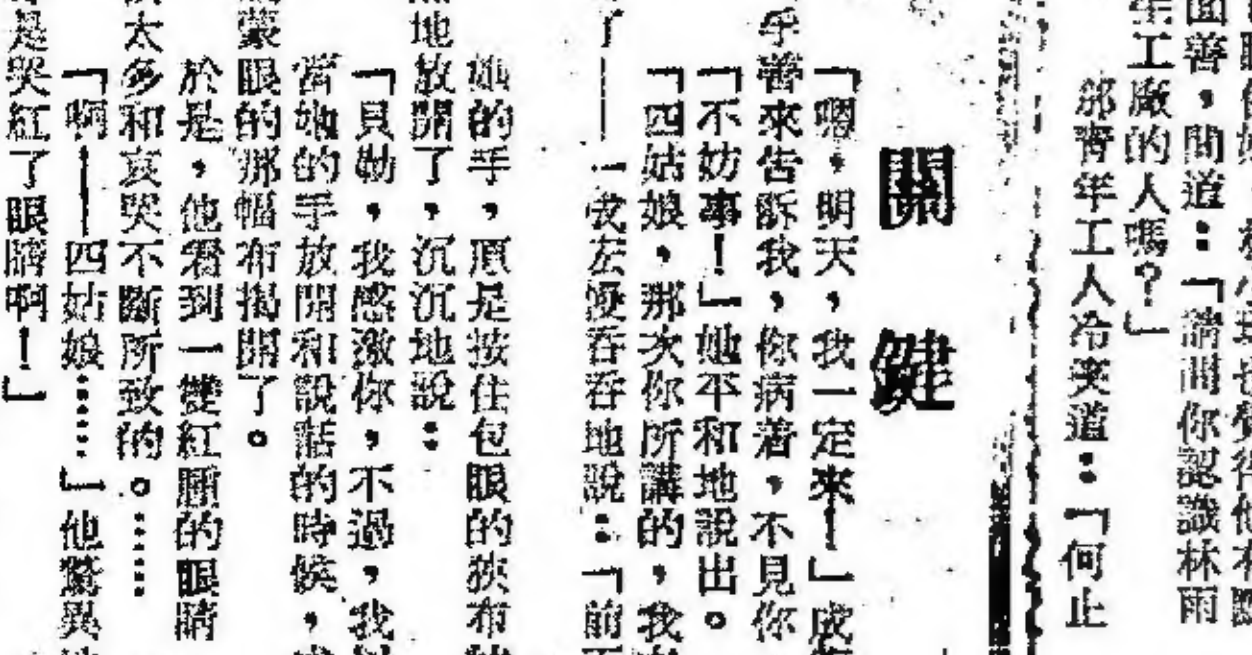 面善，問道：「請問你認識林雨
生工廠的人嗎？」
那青年工人冷笑道：「何止
開鍵
「嗯，明天，我一定來！」成
乎善來告訴我，你病着，不見你
「不妨事！」她平和地說出。
「四姑娘，那次你所講的，我
了——」成宏慢吞吞地說：「前
她的手，原是按住包眼的狹布
地放開了，沉沉地說：
「貝勒，我感激你，不過，我
當她的手放開和說話的時候，
蒙眼的那幅布揭開了。
於是，他看到一雙紅腫的眼睛
太多和哀哭不斷所致的。……
「啊——四姑娘……」他驚異
是哭紅了眼睛啊！」